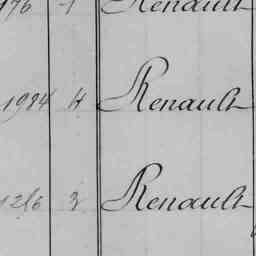 176 1 Renault
1984 H Renault
1216 3 Renault